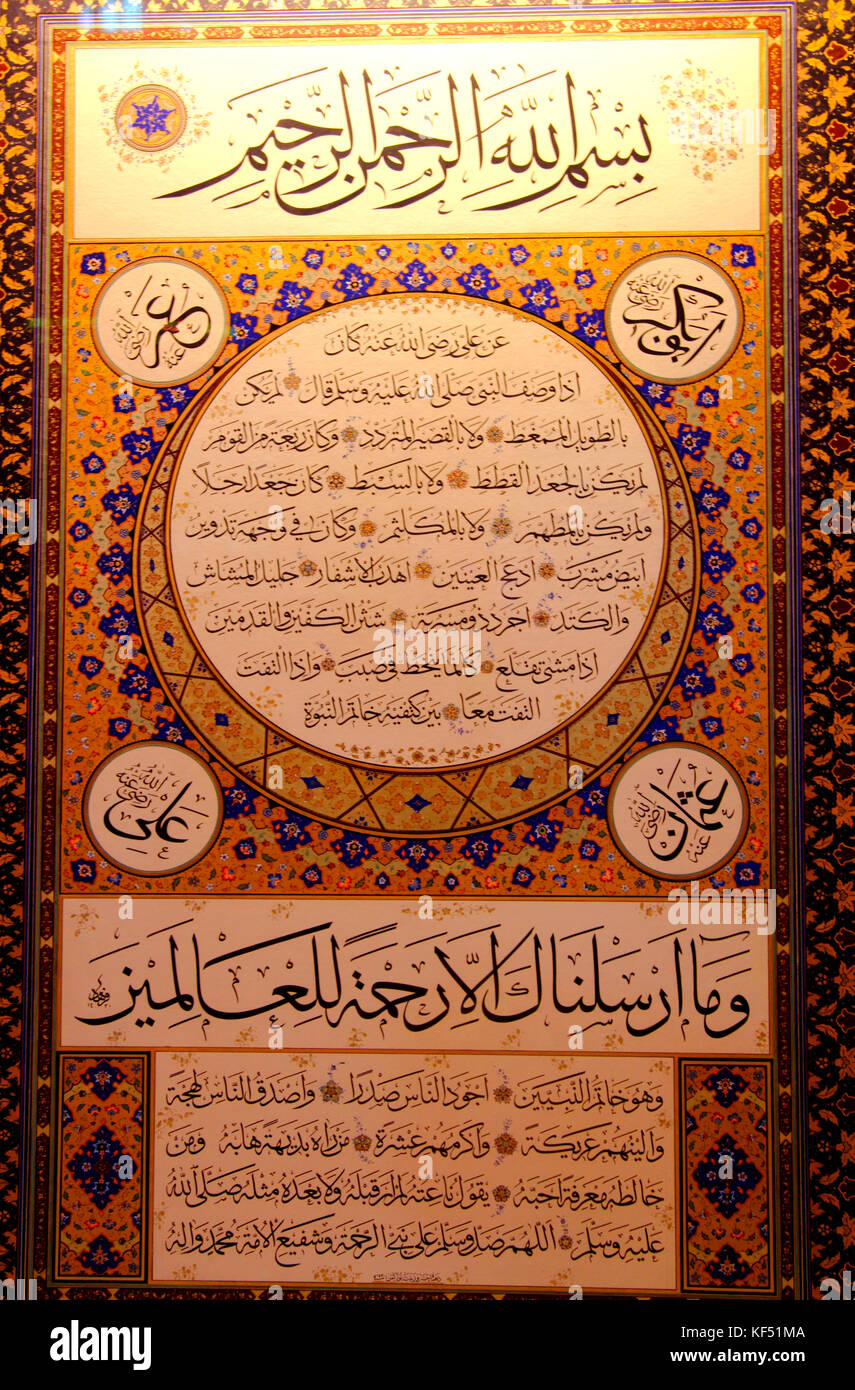 بِسْمِ اللهِ الرَّحْمٰنِ الرَّحِيمِ
ابوبكر رضى الله عنه
عمر رضى الله عنه
عَنْ عَلىٍّ رَضِىَ اللهُ عَنْهُ كَانَ
اِذَا وَصَفَ النَّبِىَّ صَلَّى اللهُ عَلَيْهِ وَسَلَّمَ قَالَ لَمْ يَكُنْ
بِالطَّوِيلِ الْمُمَّغِطِ وَلَا بِالْقَصِيرِ الْمُتَرَدِّدِ وَكَانَ رَبْعَةً مِنَ الْقَوْمِ
لَمْ يَكُنْ بِالْجَعْدِ الْقَطَطِ وَلَا بِالسَّبِطِ كَانَ جَعْدًا رَجِلًا
وَلَمْ يَكُنْ بِالْمُطَهَّمِ وَلَا بِالْمُكَلْثَمِ وَكَانَ فِى وَجْهِهِ تَدْوِيرٌ
اَبْيَضُ مُشْرَبٌ اَدْعَجُ الْعَيْنَيْنِ اَهْدَبُ الْاَشْفَارِ جَلِيلُ الْمُشَاشِ
وَالْكَتَدِ اَجْرَدُ ذُو مَسْرُبَةٍ شَثْنُ الْكَفَّيْنِ وَالْقَدَمَيْنِ
اِذَا مَشَى تَقَلَّعَ كَاَنَّمَا يَنْحَطُّ فِى صَبَبٍ وَاِذَا الْتَفَتَ
الْتَفَتَ مَعًا بَيْنَ كَتِفَيْهِ خَاتَمُ النُّبُوَّةِ
عثمان رضى الله عنه
على رضى الله عنه
وَمَا اَرْسَلْنَاكَ اِلَّا رَحْمَةً لِلْعَالَمِينَ
وَهُوَ خَاتَمُ النَّبِيِّينَ اَجْوَدُ النَّاسِ صَدْرًا وَاَصْدَقُ النَّاسِ لَهْجَةً
وَاَلْيَنُهُمْ عَرِيكَةً وَاَكْرَمُهُمْ عِشْرَةً مَنْ رَاٰهُ بَدِيهَةً هَابَهُ وَمَنْ
خَالَطَهُ مَعْرِفَةً اَحَبَّهُ يَقُولُ نَاعِتُهُ لَمْ اَرَ قَبْلَهُ وَلَا بَعْدَهُ مِثْلَهُ صَلَّى اللهُ
عَلَيْهِ وَسَلَّمَ اَللّٰهُمَّ صَلِّ وَسَلِّمْ عَلَى نَبِىِّ الرَّحْمَةِ وَشَفِيعِ الْاُمَّةِ مُحَمَّدٍ وَاٰلِهِ
alamy
Image ID: KF51MA
www.alamy.com